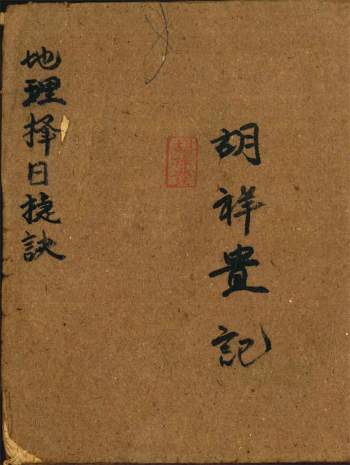 胡祥貴記
地理擇日捷訣